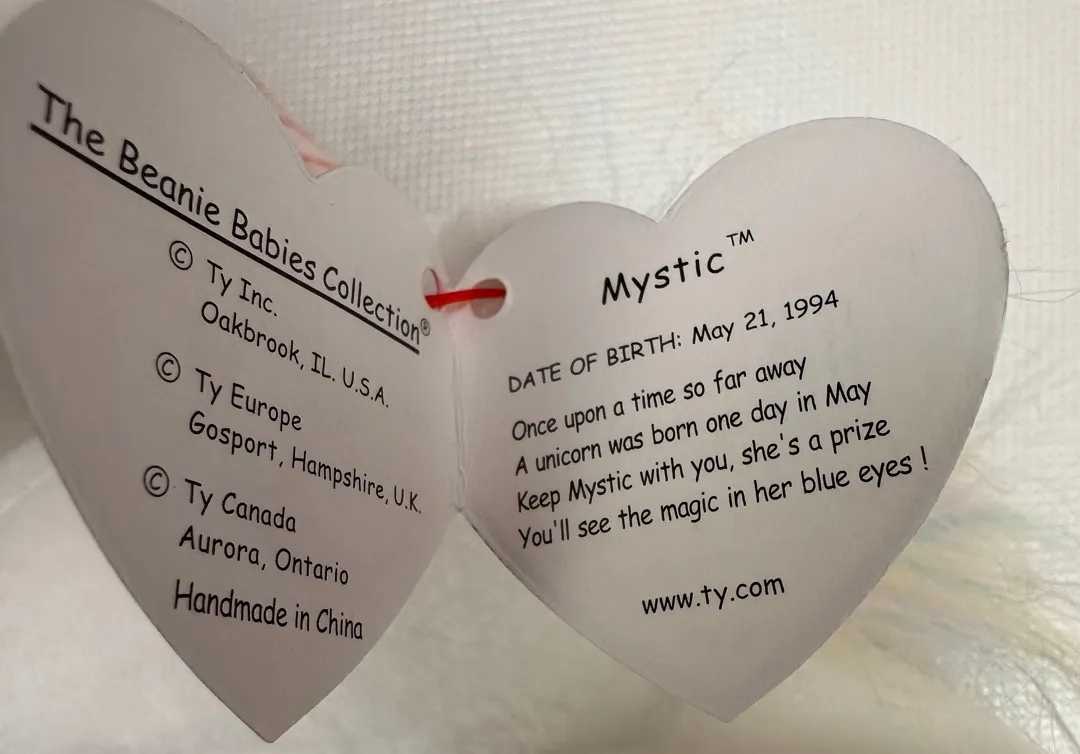 The Beanie Babies Collection®
© Ty Inc.
Oakbrook, IL. U.S.A.
© Ty Europe
Gosport, Hampshire, U.K.
© Ty Canada
Aurora, Ontario
Handmade in China
Mystic™
DATE OF BIRTH: May 21, 1994
Once upon a time so far away
A unicorn was born one day in May
Keep Mystic with you, she's a prize
You'll see the magic in her blue eyes !
www.ty.com